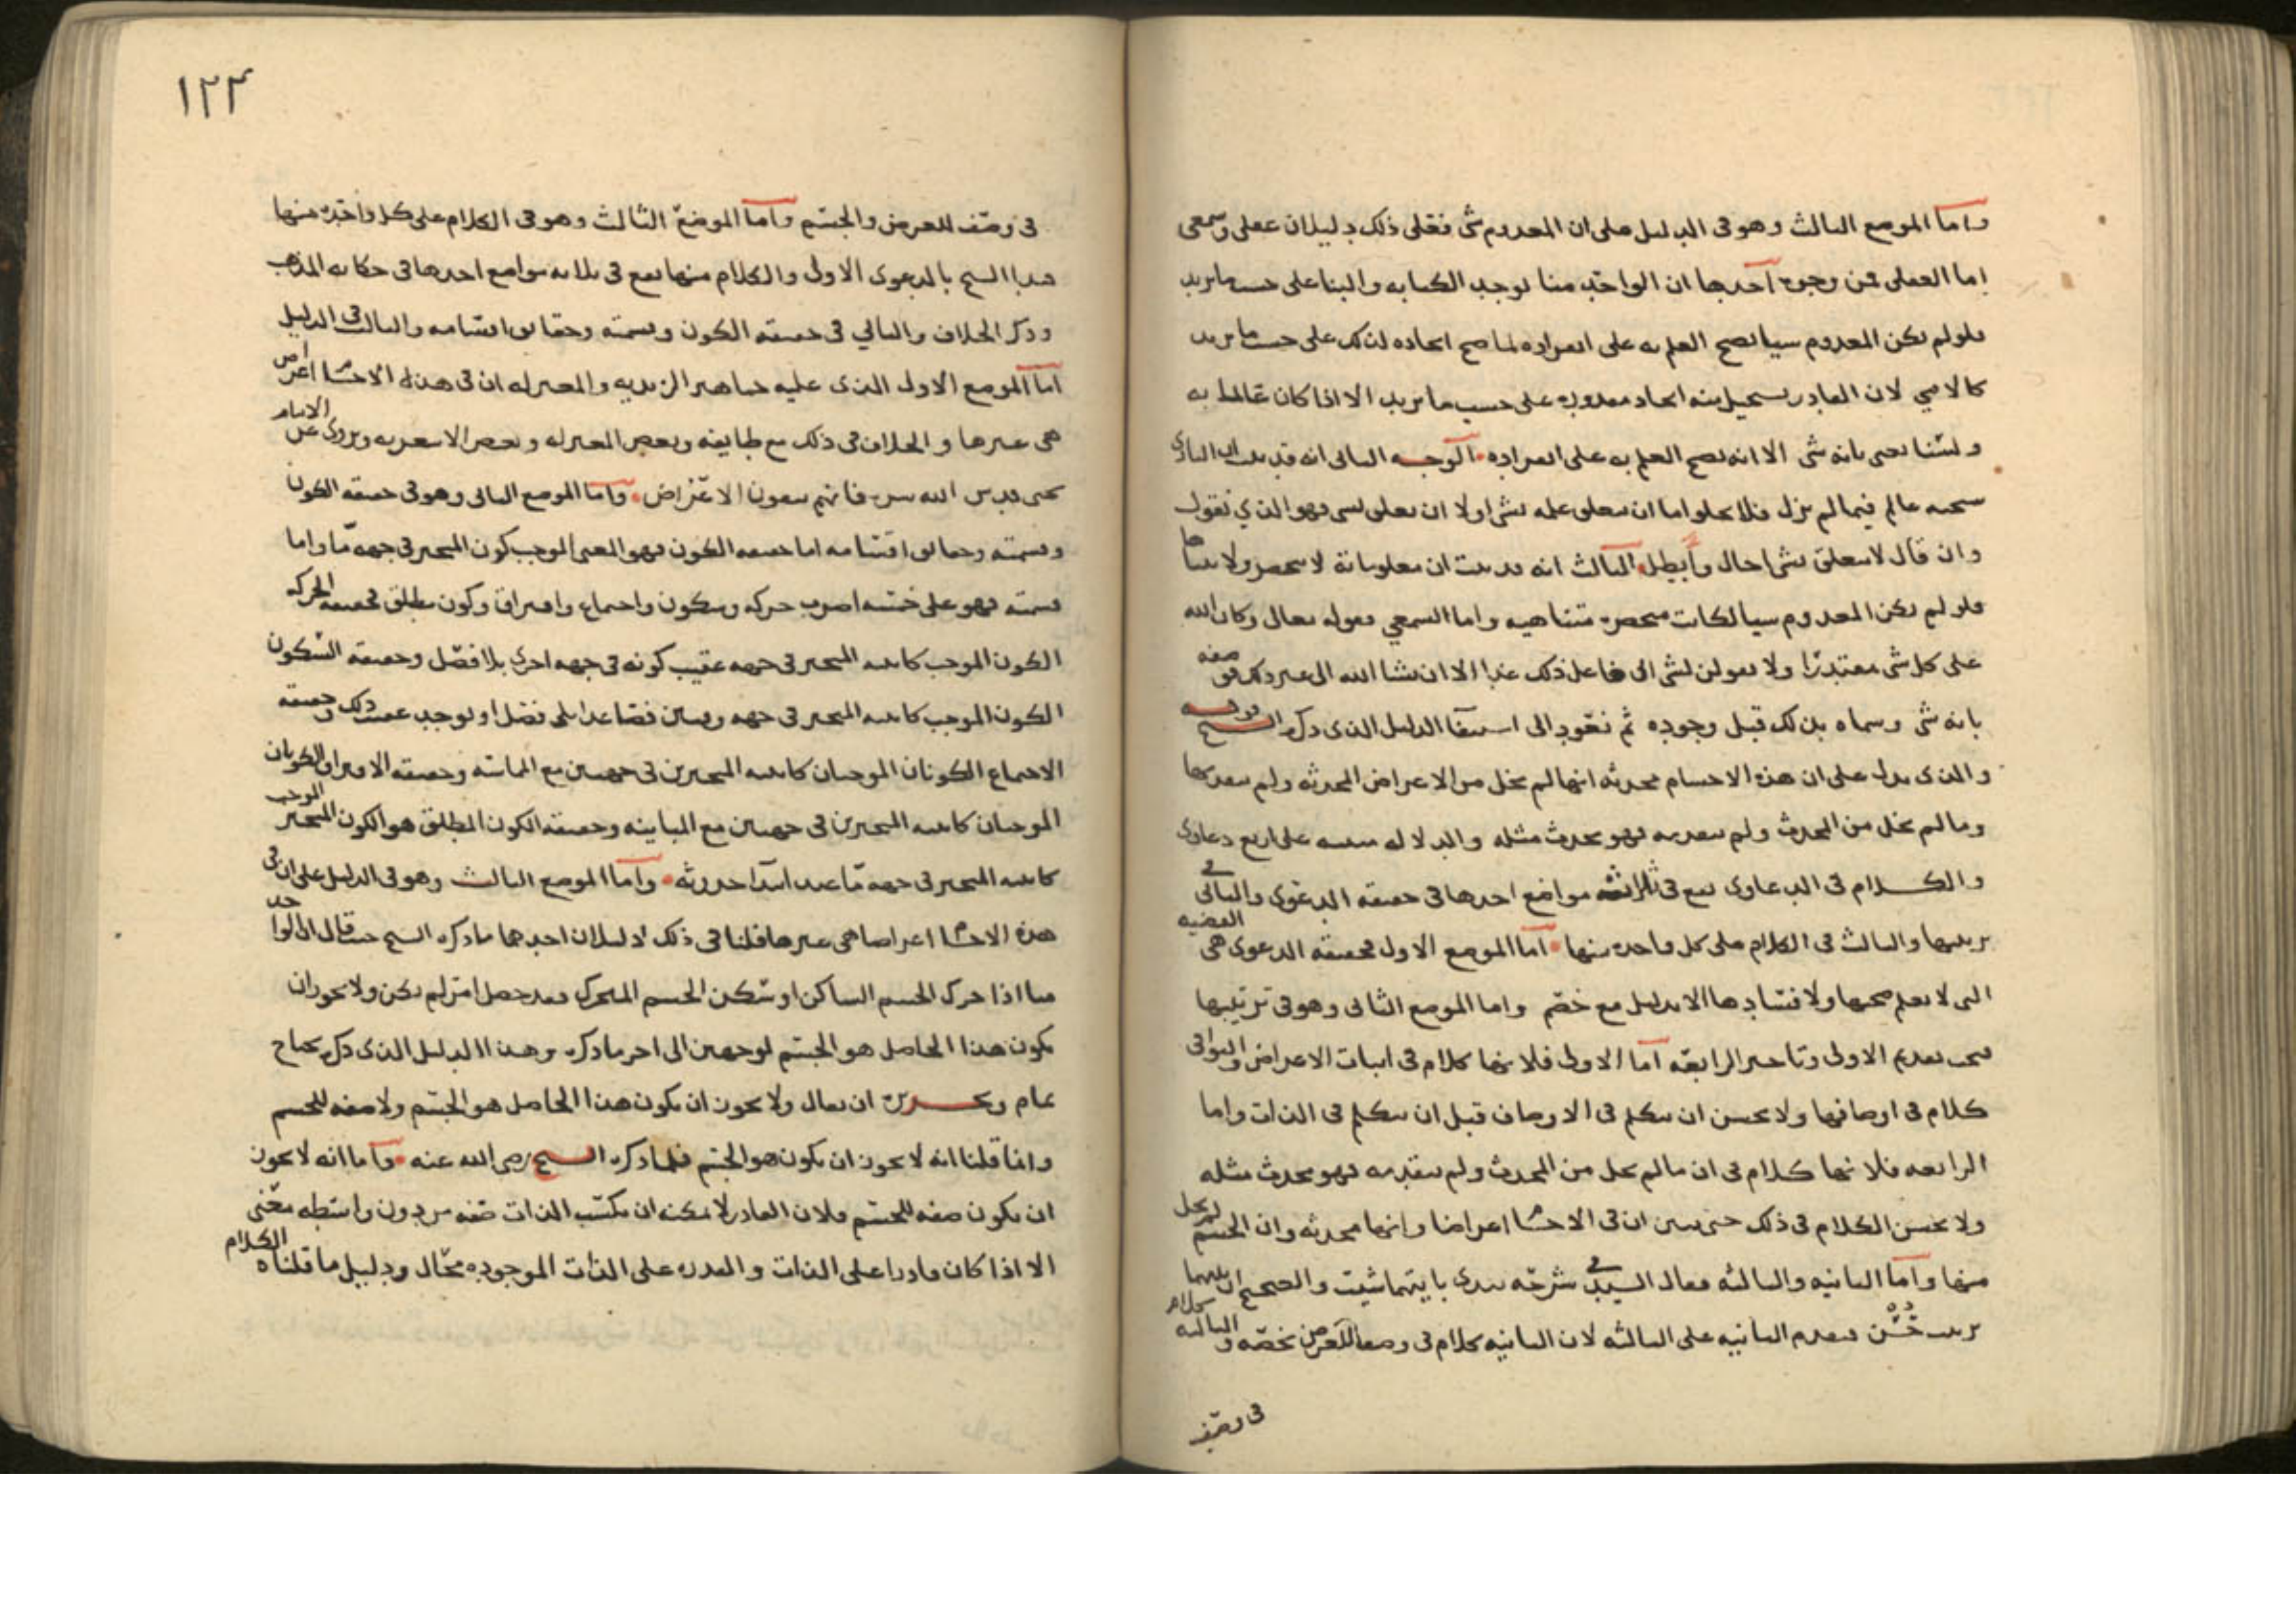 واما الموضع الثالث وهو في الدليل على ان المعدوم شي فعلى ذلك دليلان عقلي وسمعي
اما العقلي فمن وجوه احدها ان الواحد منا يوجد الكتابه والبنا على حسب ما يريد
فلو لم يكن المعدوم شيا يصح العلم به على انفراده لما صح ايجاده لذلك على حسب ما يريد
كالامي لان القادر يستحيل منه ايجاد مقدوره على حسب ما يريد الا اذا كان عالما به
ولسنا نعني بانه شي الا انه يصح العلم به على انفراده الوجه الثاني انه قد ثبت ان الباري
سبحنه عالم فيما لم يزل فلا يخلو اما ان يتعلق علمه بشي اولا ان تعلق بشي فهو الذي نقول
وان قال لا يتعلق بشي احال وأبطل الثالث انه قد ثبت ان معلوماته لا تنحصر ولا تتناها
فلو لم يكن المعدوم شيا لكانت منحصره متناهيه واما السمعي فقوله تعالى وكان الله
على كل شي مقتدرا ولا تقولن لشي اني فاعل ذلك غدا الا ان يشا الله الى غير ذلك فوصفه
بانه شي وسماه بذلك قبل وجوده ثم نعود الى استيفا الدليل الذي ذكره الشيخ قوله
والذي يدل على ان هذه الاجسام محدثه انها لم تخل من الاعراض المحدثه ولم تتقدمها
وما لم يخل من المحدث ولم يتقدمه فهو محدث مثله والدلاله مبنيه على اربع دعاوى
والكلام في الدعاوى يقع في ثلاثه مواضع احدها في حقيقه الدعوى والثاني في
ترتيبها والثالث في الكلام على كل واحده منها اما الموضع الاول فحقيقه الدعوى هي القضيه
التي لا يعلم صحتها ولا فسادها الا بدليل مع خصم واما الموضع الثاني وهو في ترتيبها
فيجب تقديم الاولى وتاخير الرابعه اما الاولى فلانها كلام في اثبات الاعراض والبواقي
كلام في اوصافها ولا يحسن ان يتكلم في الاوصاف قبل ان يتكلم في الذات واما
الرابعه فلانها كلام في ان ما لم يخل من المحدث ولم يتقدمه فهو محدث مثله
ولا يحسن الكلام في ذلك حتى يبين ان في الاجسام اعراضا وانها محدثه وان الجسم لم يخل
منها واما الثانيه والثالثه فقال السيد في شرحه تبدى بايتهما شيت والصحيح ان بينهما
ترتيب حسن فتقدم الثانيه على الثالثه لان الثانيه كلام في وصف للعرض يخصه والثالثه كلام
في وصف
١٢٣
في وصف للعرض والجسم واما الموضع الثالث وهو في الكلام على كل واحده منها
فبدا الشيخ بالدعوى الاولى والكلام منها يقع في ثلاثه مواضع احدها في حكايه المذهب
وذكر الخلاف والثاني في حقيقه الكون وقسمته وحقايق اقسامه والثالث في الدليل
اما الموضع الاول الذي عليه جماهير الزيديه والمعتزله ان في هذه الاجسام اعراض
هي غيرها والخلاف في ذلك مع طايفه وبعض المعتزله وبعض الاشعريه ويروى عن الامام
يحيى قدس الله سره فانهم ينفون الاعراض واما الموضع الثاني وهو في حقيقه الكون
وقسمته وحقايق اقسامه اما حقيقه الكون فهو المعنى الموجب كون المتحيز في جهه ما واما
قسمته فهو على خمسه اضرب حركه وسكون واجتماع وافتراق وكون مطلق فحقيقه الحركه
الكون الموجب كاينيه المتحيز في جهه عقيب كونه في جهه اخرى بلا فصل وحقيقه السكون
الكون الموجب كاينيه المتحيز في جهه وقتين فصاعدا بلا فصل او يوجد عقيب ذلك وحقيقه
الاجتماع الكونان الموجبان كاينيه المتحيزين في جهتين مع المماسه وحقيقه الافتراق الكونان
الموجبان كاينيه المتحيزين في جهتين مع المباينه وحقيقه الكون المطلق هو الكون الموجب
كاينيه المتحيز في جهه ما عند ابتدا حدوثه واما الموضع الثالث وهو في الدليل على ان في
هذه الاجسام اعراضا هي غيرها فلنا في ذلك دليلان احدهما ما ذكره الشيخ حيث قال ان الواحد
منا اذا حرك الجسم الساكن او سكن الجسم المتحرك فقد حصل امر لم يكن ولا يجوز ان
يكون هذا الحاصل هو الجسم لوجهين الى اخر ما ذكره وهذا الدليل الذي ذكره يحتاج
تمام وتحريره ان يقال ولا يجوز ان يكون هذا الحاصل هو الجسم ولا صفه للجسم
وانما قلنا انه لا يجوز ان يكون هو الجسم فلما ذكره الشيخ رضي الله عنه واما انه لا يجوز
ان يكون صفه للجسم فلان القادر لا يمكنه ان يكسب الذات صفه من دون واسطه معنى
الا اذا كان قادرا على الذات والقدره على الذات الموجوده محال ودليل ما قلناه الكلام